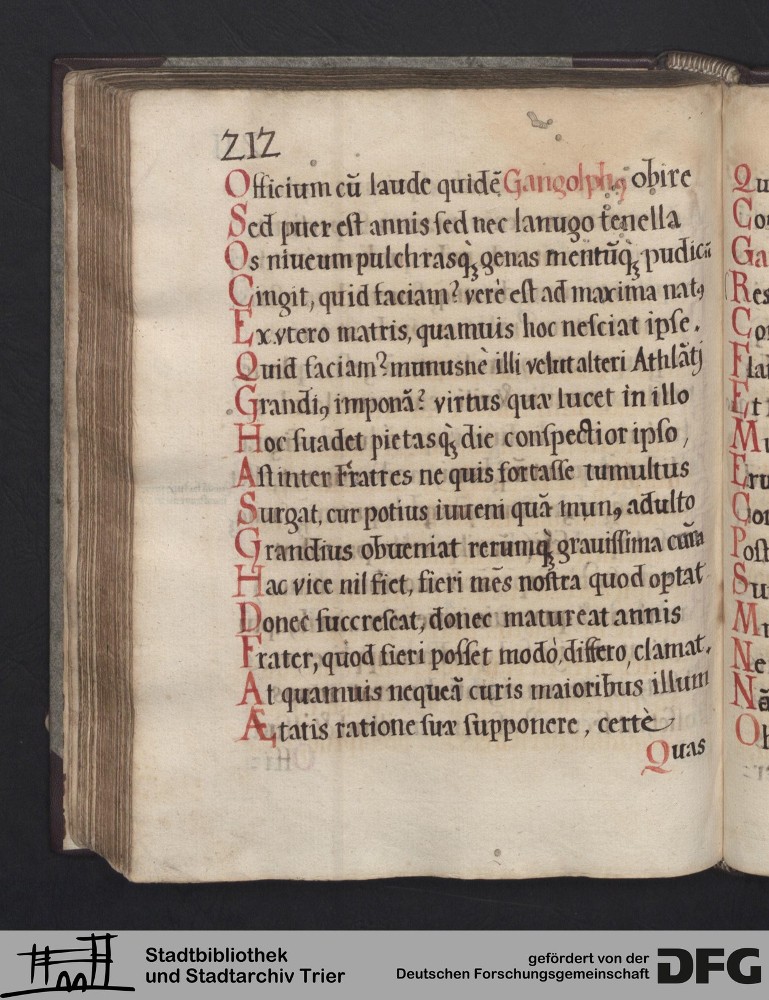 212
Officium cū laude quidē Gangolphꝰ obire
Sed puer est annis sed nec lanugo tenella
Os niueum pulchrasq̨ genas mentūq̨ pudicū
Cingit, quid faciam? verè est ad maxima natꝰ
Ex vtero matris, quamuis hoc nesciat ipse.
Quid faciam? munusnè illi velut alteri Athlātj
Grandiꝰ imponā? virtus quæ lucet in illo
Hoc suadet pietasq̨ die conspectior ipso,
Ast inter Fratres ne quis fortasse tumultus
Surgat, cur potius iuueni quā munꝰ adulto
Grandius obueniat rerumq̨ grauissima cūra
Hac vice nil fiet, fieri mēs nostra quod optat
Donec succrescat, donec matureat annis
Frater, quod fieri posset modò, differo, clamat.
At quamuis nequeā curis maioribus illum
Ætatis ratione suæ supponere, certè
Quas
Qu
Co
Ga
Res
Co
Fla
Et
Mu
Eru
Co
Post
Su
Mu
Ne
Nā
Ob
Stadtbibliothek
und Stadtarchiv Trier
gefördert von der
Deutschen Forschungsgemeinschaft
DFG